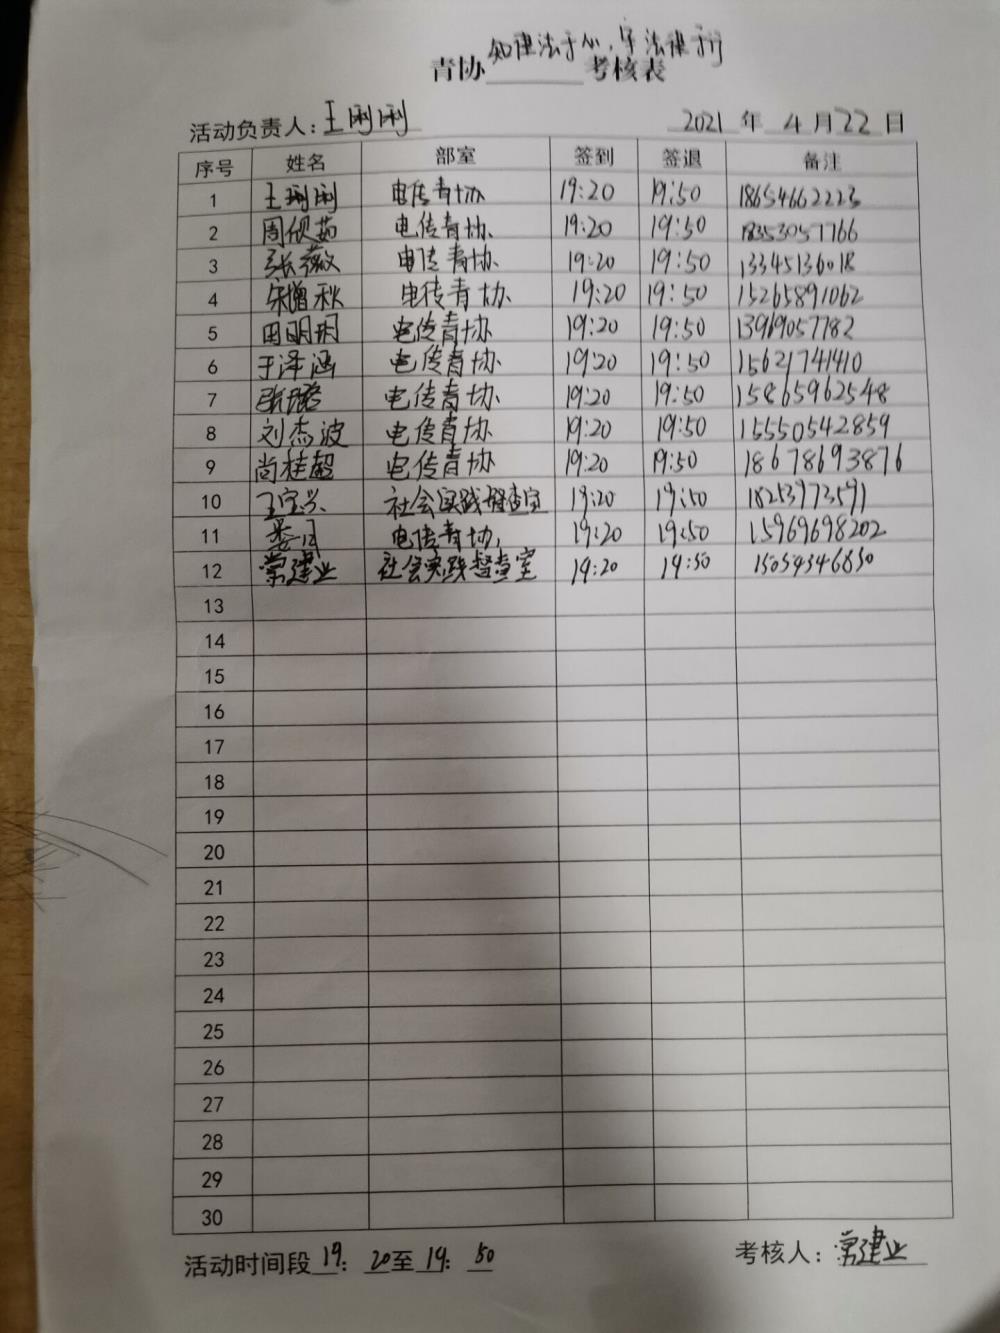 知律法于心,守法律于行
青协 考核表
活动负责人:王刚刚 2021 年 4 月 22 日
序号 姓名 部室 签到 签退 备注
1 电传青协 19:20 19:50 18654662223
2 周欣茹 电传青协 19:20 19:50 18353057766
3 张薇 电传青协 19:20 19:50 13345136018
4 宋增秋 电传青协 19:20 19:50 15265891062
5 田明玥 电传青协 19:20 19:50 13969057782
6 于泽涵 电传青协 19:20 19:50 15621741410
7 张璐 电传青协 19:20 19:50 15865962548
8 刘杰波 电传青协 19:20 19:50 15550542859
9 尚桂超 电传青协 19:20 19:50 18678693876
10 王宝兴 社会实践督查室 19:20 19:50 18253973591
11 娄月 电传青协 19:20 19:50 15969698202
12 常建业 社会实践督查室 19:20 19:50 15054346850
13
14
15
16
17
18
19
20
21
22
23
24
25
26
27
28
29
30
活动时间段 19: 20至 19: 50 考核人:常建业